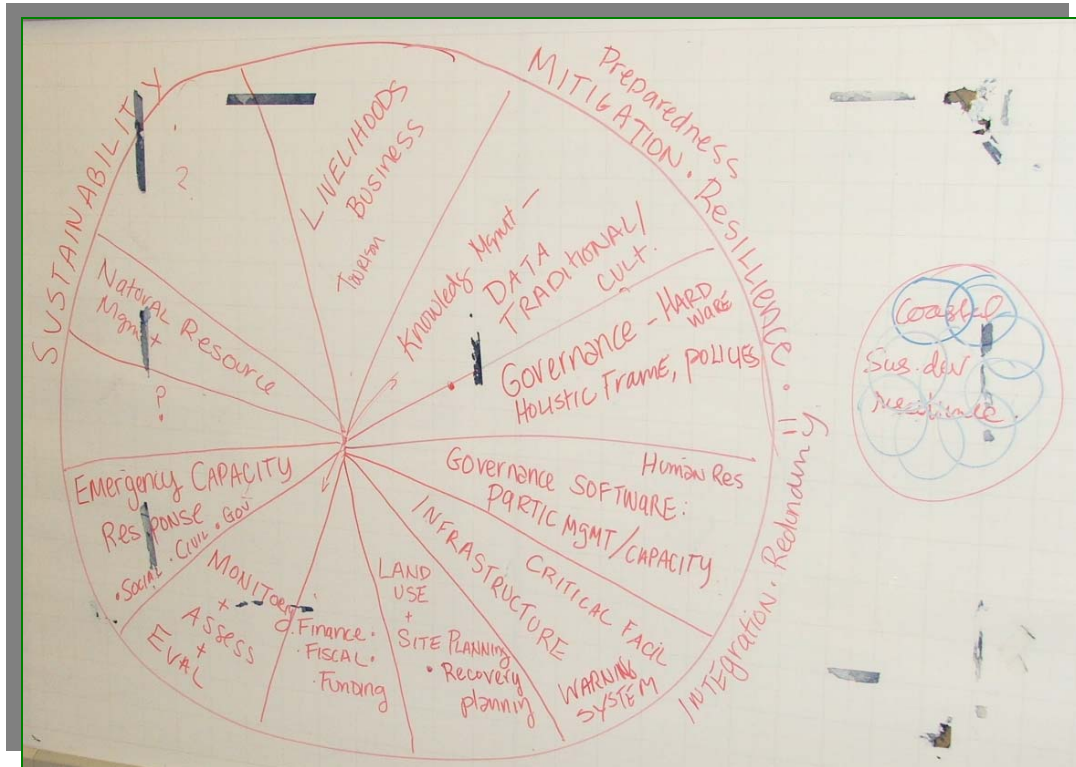 SUSTAINABILITY
Preparedness
MITIGATION. Resillience.
=
INTEgration. Redunduny
?
LIVELIHOODS
BUSINESS
Tourism
Knowledg Mgmt -
DATA
TRADITIONAL/
CULT.
Governance - HARD
WARE
HOLISTIC Frame, POLICIES
Human Res
Governance SOFTWARE:
PARTIC MGMT/CAPACITY
CRITICAL FACIL
INFRASTRUCTURE
WARNING
SYSTEM
LAND
USE
+
SITE PLANNING
• Recovery
planning
. Finance.
. FISCAL.
. Funding
MONITOrg
+
ASSESS
+
EVAL
Emergency CAPACITY
Response
. SOCIAL. CIVIL. GOV
?
Natural Resource
Mgmt
Coastal
Sus.dev